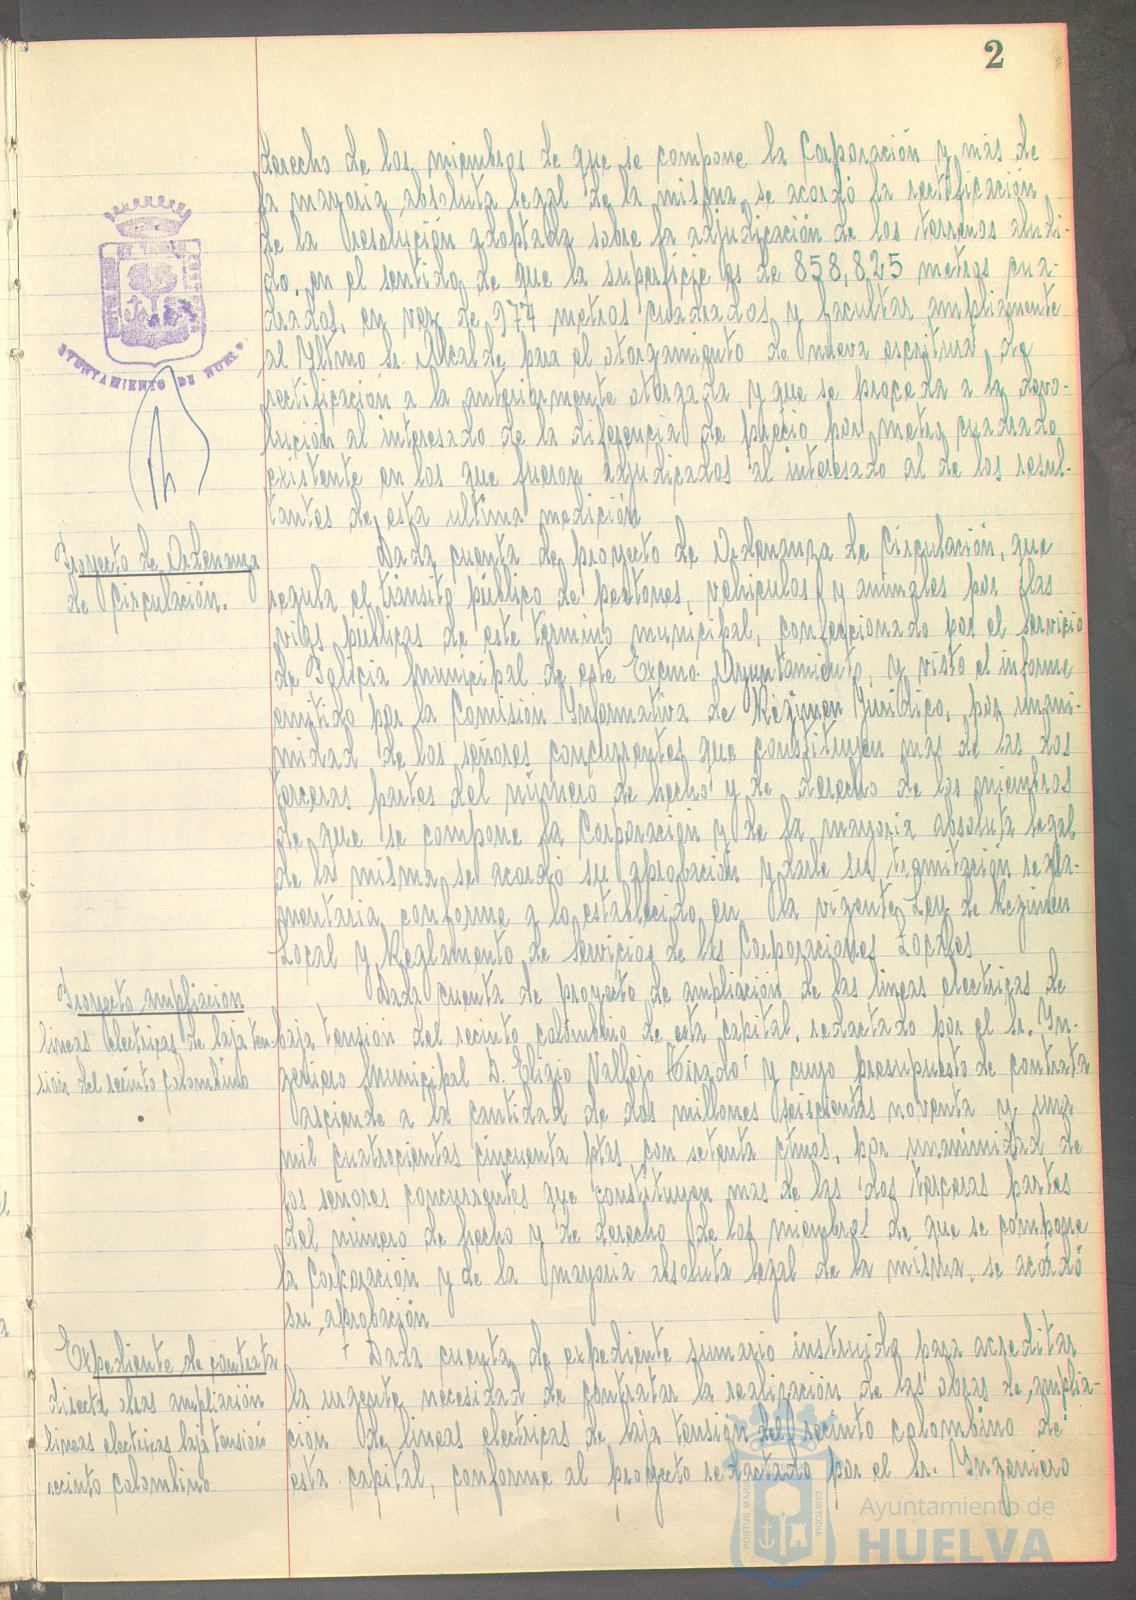 2
derecho de los miembros de que se compone la Corporación y más de
la mayoría absoluta legal de la misma se acordó la rectificación
de la resolución adoptada sobre la adjudicación de los terrenos aludi-
do, en el sentido de que la superficie es de 858,825 metros cua-
drados, en vez de 977 metros cuadrados y facultar ampliamente
al Iltmo Sr. Alcalde para el otorgamiento de nueva escritura de
rectificación a la anteriormente otorgada y que se proceda a la devo-
lución al interesado de la diferencia de precio por metro cuadrado
existente en los que fueron adjudicados al interesado al de los resul-
tantes de esta ultima medición
AYUNTAMIENTO DE HUELVA
Proyecto de Ordenanza
de Circulación.
Dada cuenta de proyecto de Ordenanza de Circulación, que
regula el tránsito público de peatones, vehiculos y animales por las
vias públicas de este termino municipal, confeccionado por el servicio
de Policia Municipal de este Excmo. Ayuntamiento, y visto el informe
emitido por la Comisión Informativa de Régimen Juridico, por unani-
midad de los señores concurrentes que constituyen mas de las dos
terceras partes del número de hecho y de derecho de los miembros
de que se compone la Corporación y de la mayoria absoluta legal
de las misma, se acordó su aprobación y darle su tramitación regla-
mentaria conforme a lo establecido en la vigente Ley de Régimen
Local y Reglamento de Servicios de las Corporaciones Locales
Proyecto ampliacion
lineas electricas de baja ten-
sión del recinto colombino
Dada cuenta de proyecto de ampliación de las lineas electricas de
baja tensión del recinto colombino de esta capital, redactado por el Sr. In-
geniero Municipal D. Eligio Vallejo Tirado y cuyo presupuesto de contrata
asciende a la cantidad de dos millones seiscientas noventa y una
mil cuatrocientas cincuenta ptas con setenta ctmos, por unanimidad de
los señores concurrentes que constituyen mas de las dos terceras partes
del número de hecho y de derecho de los miembros de que se compone
la Corporación y de la mayoria absoluta legal de la misma, se acordó
su aprobación
Expediente de contrata
directa obras ampliación
lineas electricas baja tensión
recinto colombino
Dada cuenta de expediente sumario instruido para acreditar
la urgente necesidad de contratar la realización de las obras de amplia-
ción de lineas electricas de baja tensión del recinto colombino de
esta capital, conforme al proyecto redactado por el Sr. Ingeniero
PORTUS MARIS CUSTODIA
Ayuntamiento de
HUELVA